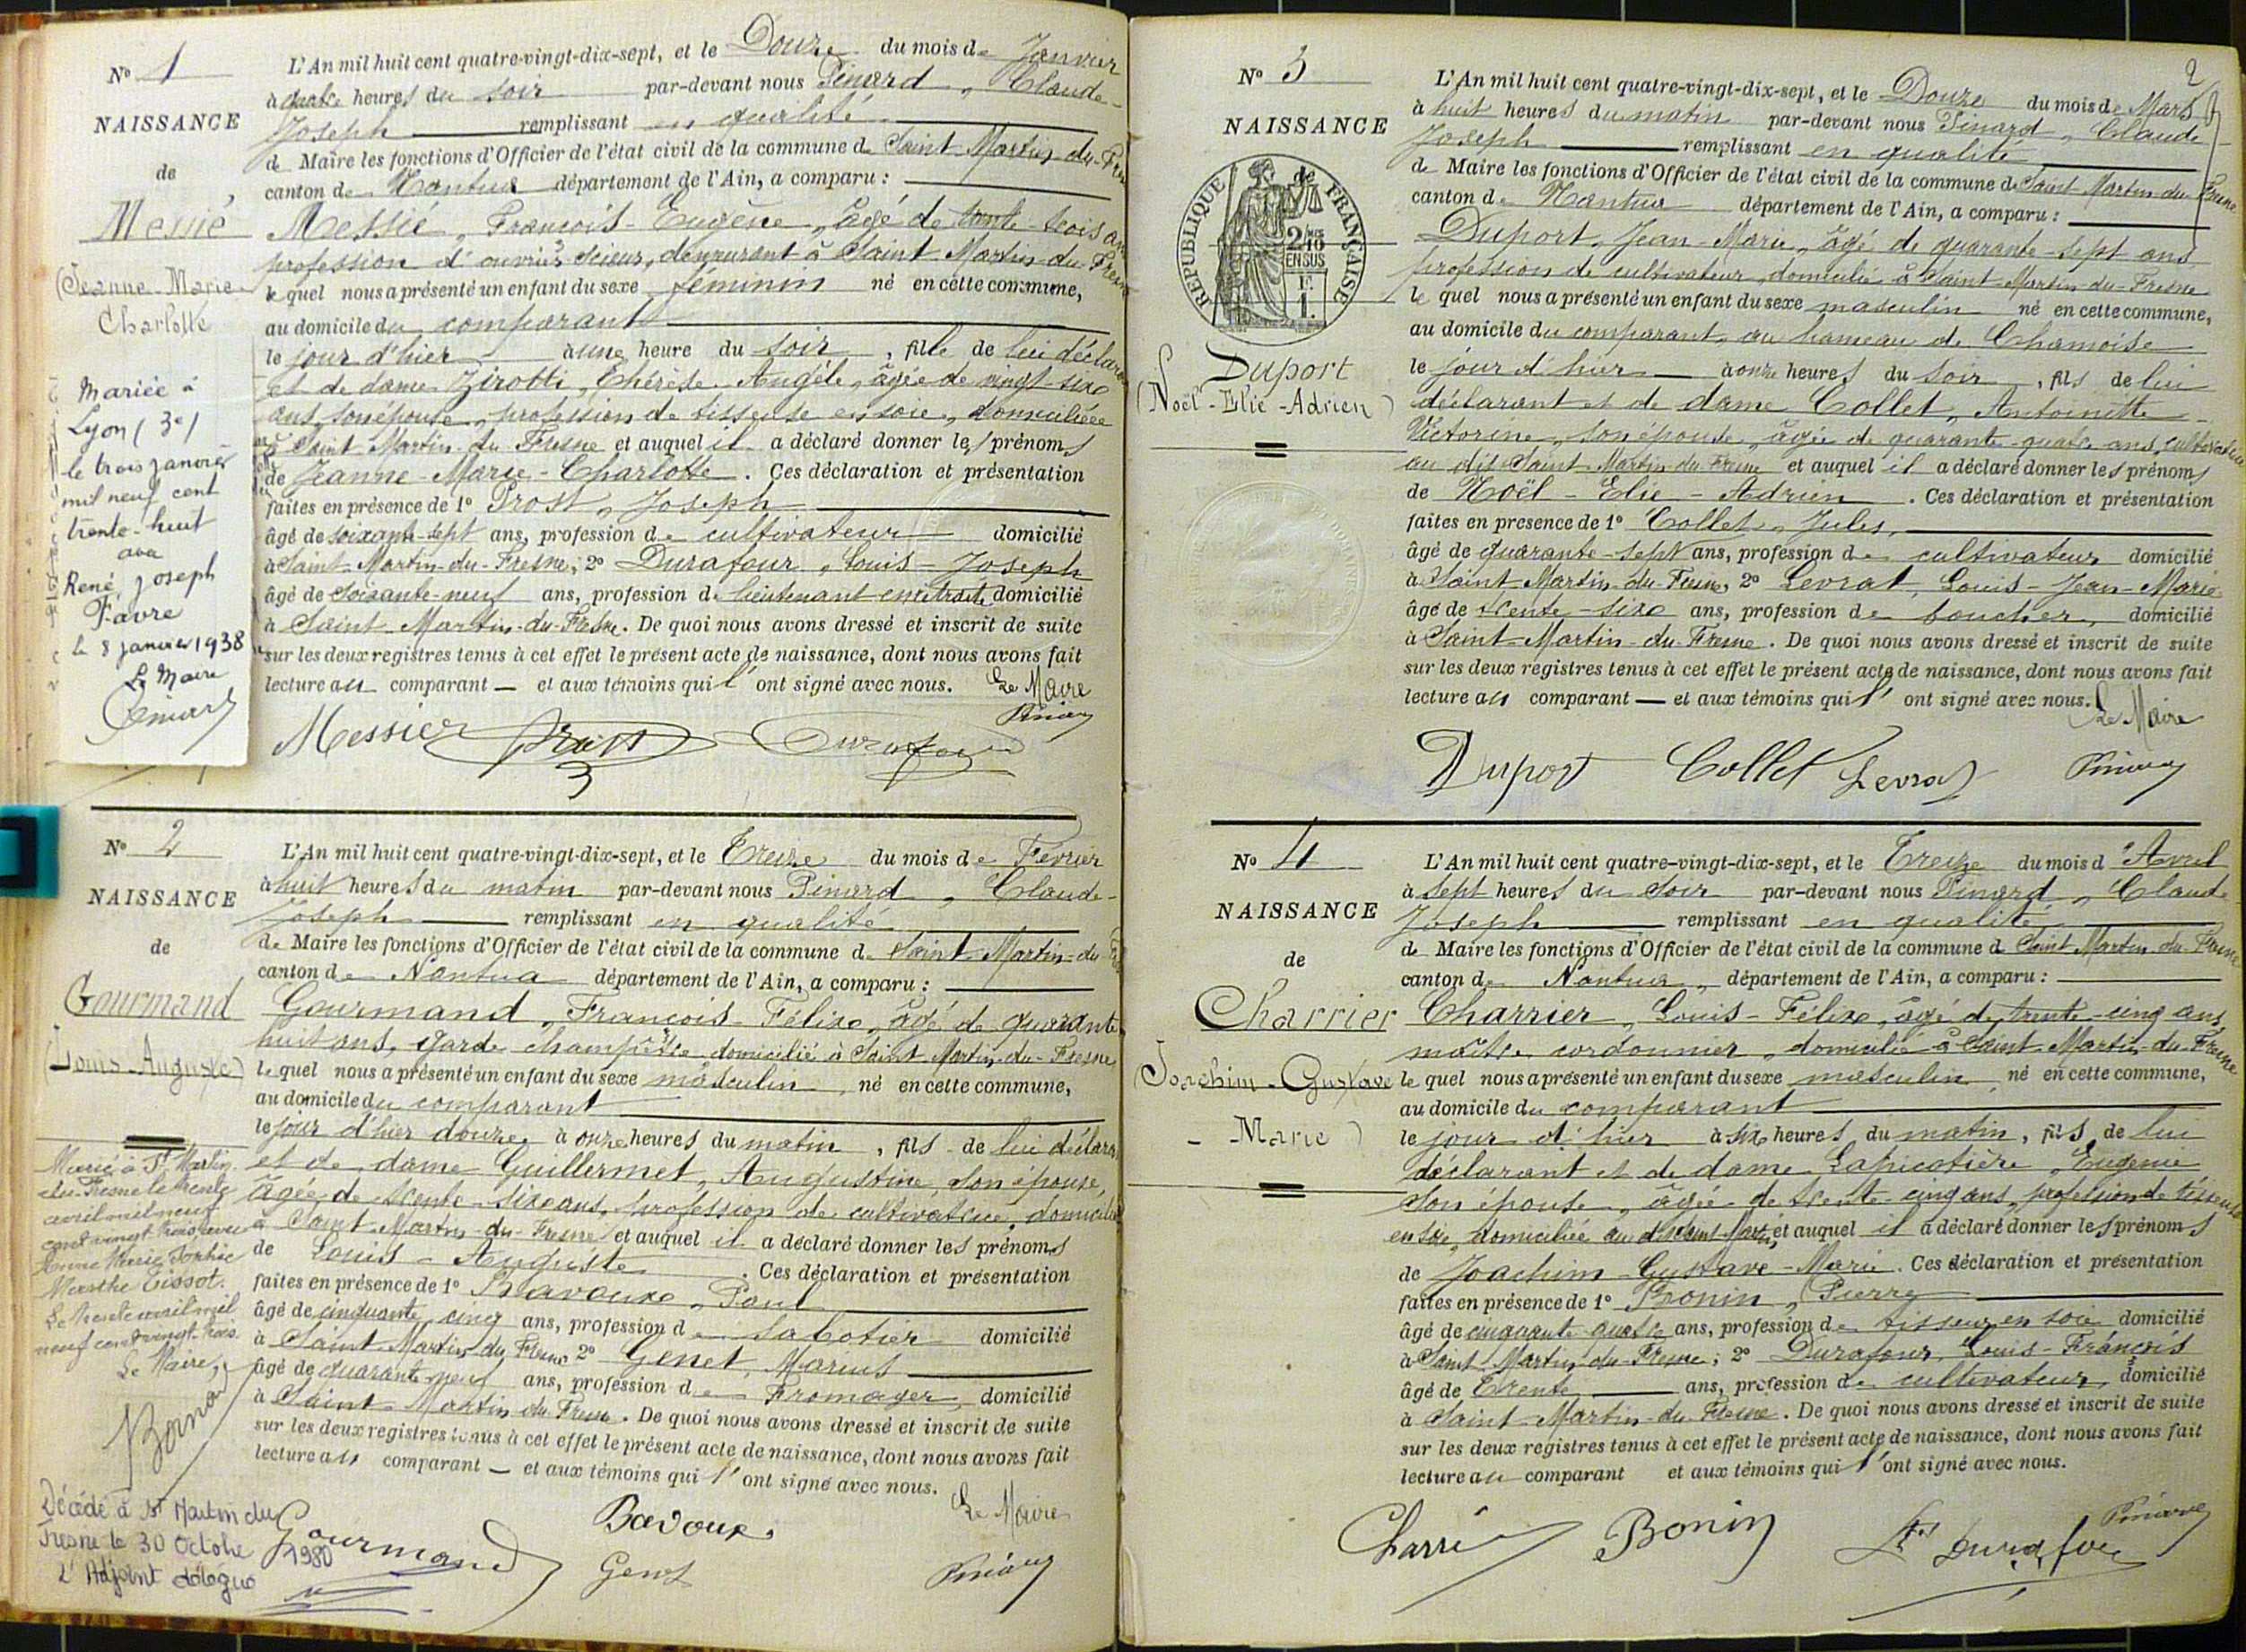 Nº 1
NAISSANCE
de
Messié
(Jeanne-Marie-
Charlotte
Mariée à
Lyon (3e)
le trois janvier
mil neuf cent
trente-huit
avec
René Joseph
Favre
le 8 janvier 1938
Le Maire
L'An mil huit cent quatre-vingt-dix-sept, et le Douze du mois de Janvier
à quatre heures du soir par-devant nous Pinard, Claude-
Joseph remplissant en qualité
de Maire les fonctions d'Officier de l'état civil de la commune de Saint-Martin-du-
canton de Nantua département de l'Ain, a comparu :
Messié, François-Eugène, âgé de trente-trois ans
profession d'ouvrier scieur, demeurant à Saint-Martin-du-Fresne
lequel nous a présenté un enfant du sexe féminin né en cette commune,
au domicile du comparant
le jour d'hier à une heure du soir, fille de lui déclarant
et de dame Zirotti, Thérèse-Angèle, âgée de vingt-six
ans, son épouse, profession de tisseuse en soie, domiciliée
à Saint-Martin-du-Fresne et auquel il a déclaré donner les prénoms
de Jeanne-Marie-Charlotte. Ces déclaration et présentation
faites en présence de 1º Prost, Joseph
âgé de soixante-sept ans, profession de cultivateur domicilié
à Saint-Martin-du-Fresne; 2º Durafour, Louis-Joseph
âgé de soixante-neuf ans, profession de lieutenant en retraite domicilié
à Saint-Martin-du-Fresne. De quoi nous avons dressé et inscrit de suite
sur les deux registres tenus à cet effet le présent acte de naissance, dont nous avons fait
lecture au comparant — et aux témoins qui l'ont signé avec nous. Le Maire
Messier Prost Durafour Pinard
Nº 2
NAISSANCE
de
Gourmand
(Louis-Auguste)
Marié à St Martin-
du-Fresne le trente
avril mil neuf
cent vingt trois avec
Marie Sophie
Marthe Tissot.
Le trente avril mil
neuf cent vingt-trois.
Le Maire,
Décédé à St Martin du
Fresne le 30 Octobre
1980
L'Adjoint délégué
L'An mil huit cent quatre-vingt-dix-sept, et le Treize du mois de Février
à huit heures du matin par-devant nous Pinard, Claude-
Joseph remplissant en qualité
de Maire les fonctions d'Officier de l'état civil de la commune de Saint-Martin-du
canton de Nantua département de l'Ain, a comparu :
Gourmand, François-Félix, âgé de quarante
huit ans, garde champêtre domicilié à Saint-Martin-du-Fresne
lequel nous a présenté un enfant du sexe masculin, né en cette commune,
au domicile du comparant
le jour d'hier douze, à onze heures du matin, fils de lui déclarant
et de dame Guillermet, Augustine, son épouse,
âgée de trente-six ans, profession de cultivatrice, domiciliée
à Saint-Martin-du-Fresne et auquel il a déclaré donner les prénoms
de Louis-Auguste. Ces déclaration et présentation
faites en présence de 1º Bavoux, Paul
âgé de cinquante cinq ans, profession de sabotier domicilié
à Saint-Martin-du-Fresne 2º Genet, Marius
âgé de quarante neuf ans, profession de Fromager, domicilié
à Saint-Martin-du-Fresne. De quoi nous avons dressé et inscrit de suite
sur les deux registres tenus à cet effet le présent acte de naissance, dont nous avons fait
lecture au comparant — et aux témoins qui l'ont signé avec nous.
Gourmand Bavoux Genet Le Maire Pinard
2
Nº 3
NAISSANCE
de
REPUBLIQUE FRANÇAISE
2/10 EN SUS
1.
Duport
(Noël-Elie-Adrien)
L'An mil huit cent quatre-vingt-dix-sept, et le Douze du mois de Mars
à huit heures du matin par-devant nous Pinard, Claude
Joseph remplissant en qualité
de Maire les fonctions d'Officier de l'état civil de la commune de Saint-Martin-du-Fresne
canton de Nantua département de l'Ain, a comparu :
Duport, Jean-Marie, âgé de quarante-sept ans
profession de cultivateur, domicilié à Saint-Martin-du-Fresne
lequel nous a présenté un enfant du sexe masculin né en cette commune,
au domicile du comparant, au hameau de Chamoise
le jour d'hier à onze heures du soir, fils de lui
déclarant et de dame Collet, Antoinette-
Victorine, son épouse, âgée de quarante-quatre ans, cultivatrice
au dit Saint-Martin-du-Fresne et auquel il a déclaré donner les prénoms
de Noël-Elie-Adrien. Ces déclaration et présentation
faites en présence de 1º Collet, Jules,
âgé de quarante-sept ans, profession de cultivateur domicilié
à Saint-Martin-du-Fresne, 2º Levrat, Louis-Jean-Marie
âgé de trente-six ans, profession de boucher, domicilié
à Saint-Martin-du-Fresne. De quoi nous avons dressé et inscrit de suite
sur les deux registres tenus à cet effet le présent acte de naissance, dont nous avons fait
lecture au comparant — et aux témoins qui l'ont signé avec nous. Le Maire
Duport Collet Levrat Pinard
Nº 4
NAISSANCE
de
Charrier
(Joachim-Gustave
-Marie)
L'An mil huit cent quatre-vingt-dix-sept, et le Treize du mois d'Avril
à sept heures du soir par-devant nous Pinard, Claude-
Joseph remplissant en qualité
de Maire les fonctions d'Officier de l'état civil de la commune de Saint-Martin-du-Fresne
canton de Nantua, département de l'Ain, a comparu :
Charrier, Louis-Félix, âgé de trente-cinq ans,
maître cordonnier, domicilié à Saint-Martin-du-Fresne
lequel nous a présenté un enfant du sexe masculin, né en cette commune,
au domicile du comparant
le jour d'hier à six heures du matin, fils de lui
déclarant et de dame Lapicotière, Eugénie
son épouse, âgée de trente-cinq ans, profession de tisseuse
en soie, domiciliée au dit Saint-Martin, et auquel il a déclaré donner les prénoms
de Joachim-Gustave-Marie. Ces déclaration et présentation
faites en présence de 1º Bonin, Pierre
âgé de cinquante-quatre ans, profession de tisseur en soie domicilié
à Saint-Martin-du-Fresne; 2º Durafour, Louis-François
âgé de Trente ans, profession de cultivateur, domicilié
à Saint-Martin-du-Fresne. De quoi nous avons dressé et inscrit de suite
sur les deux registres tenus à cet effet le présent acte de naissance, dont nous avons fait
lecture au comparant et aux témoins qui l'ont signé avec nous.
Charrier Bonin Ls Durafour Pinard